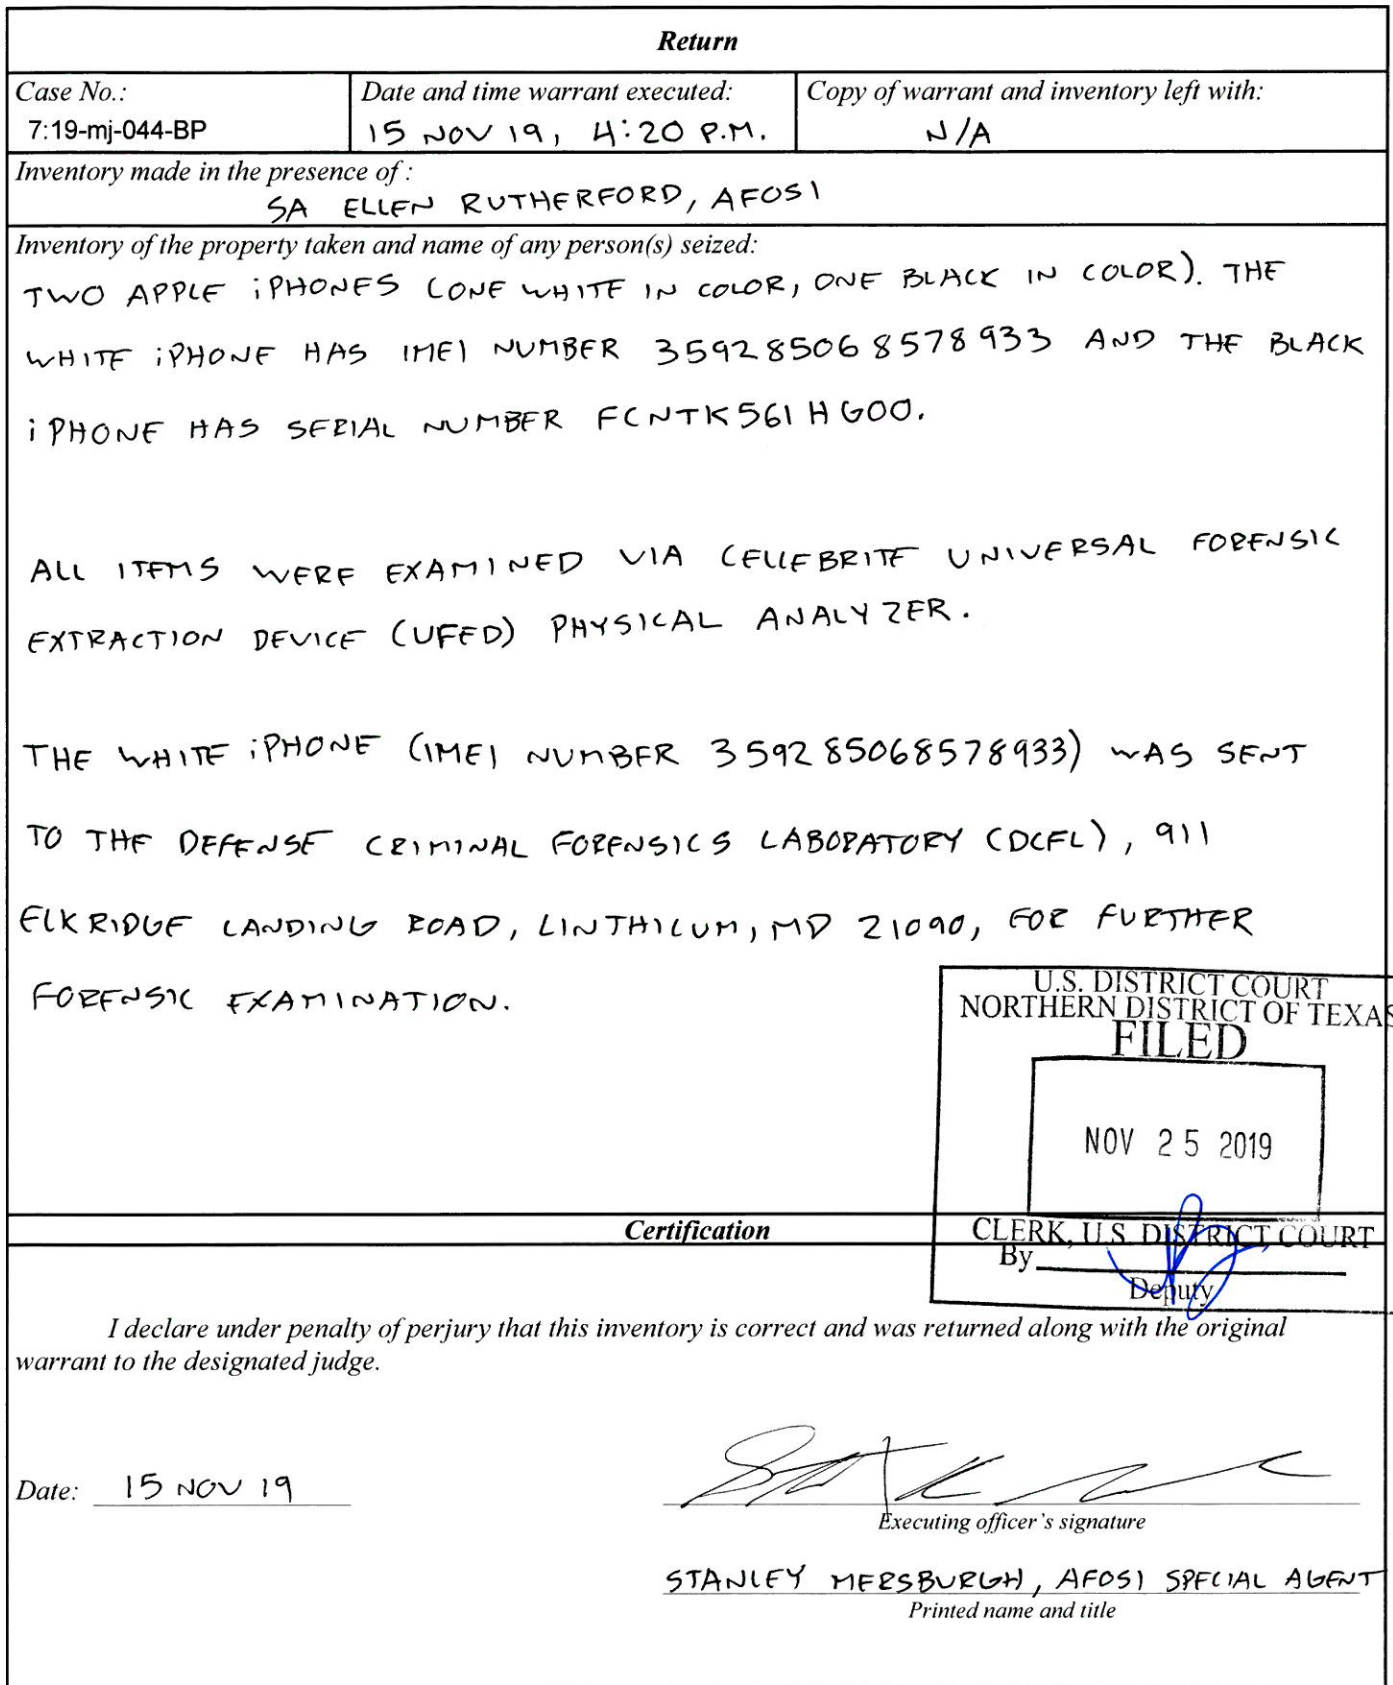 Return
Case No.:
7:19-mj-044-BP
Date and time warrant executed:
15 NOV 19, 4:20 P.M.
Copy of warrant and inventory left with:
N/A
Inventory made in the presence of :
SA ELLEN RUTHERFORD, AFOSI
Inventory of the property taken and name of any person(s) seized:
TWO APPLE iPHONES (ONE WHITE IN COLOR, ONE BLACK IN COLOR). THE
WHITE iPHONE HAS IMEI NUMBER 359285068578933 AND THE BLACK
iPHONE HAS SERIAL NUMBER FCNTK561HG00.
ALL ITEMS WERE EXAMINED VIA CELLEBRITE UNIVERSAL FORENSIC
EXTRACTION DEVICE (UFED) PHYSICAL ANALYZER.
THE WHITE iPHONE (IMEI NUMBER 359285068578933) WAS SENT
TO THE DEFENSE CRIMINAL FORENSICS LABORATORY (DCFL), 911
ELKRIDGE LANDING ROAD, LINTHICUM, MD 21090, FOR FURTHER
FORENSIC EXAMINATION.
U.S. DISTRICT COURT
NORTHERN DISTRICT OF TEXAS
FILED
NOV 25 2019
CLERK, U.S. DISTRICT COURT
By
Deputy
Certification
I declare under penalty of perjury that this inventory is correct and was returned along with the original
warrant to the designated judge.
Date: 15 NOV 19
Executing officer's signature
STANLEY MERSBURGH, AFOSI SPECIAL AGENT
Printed name and title